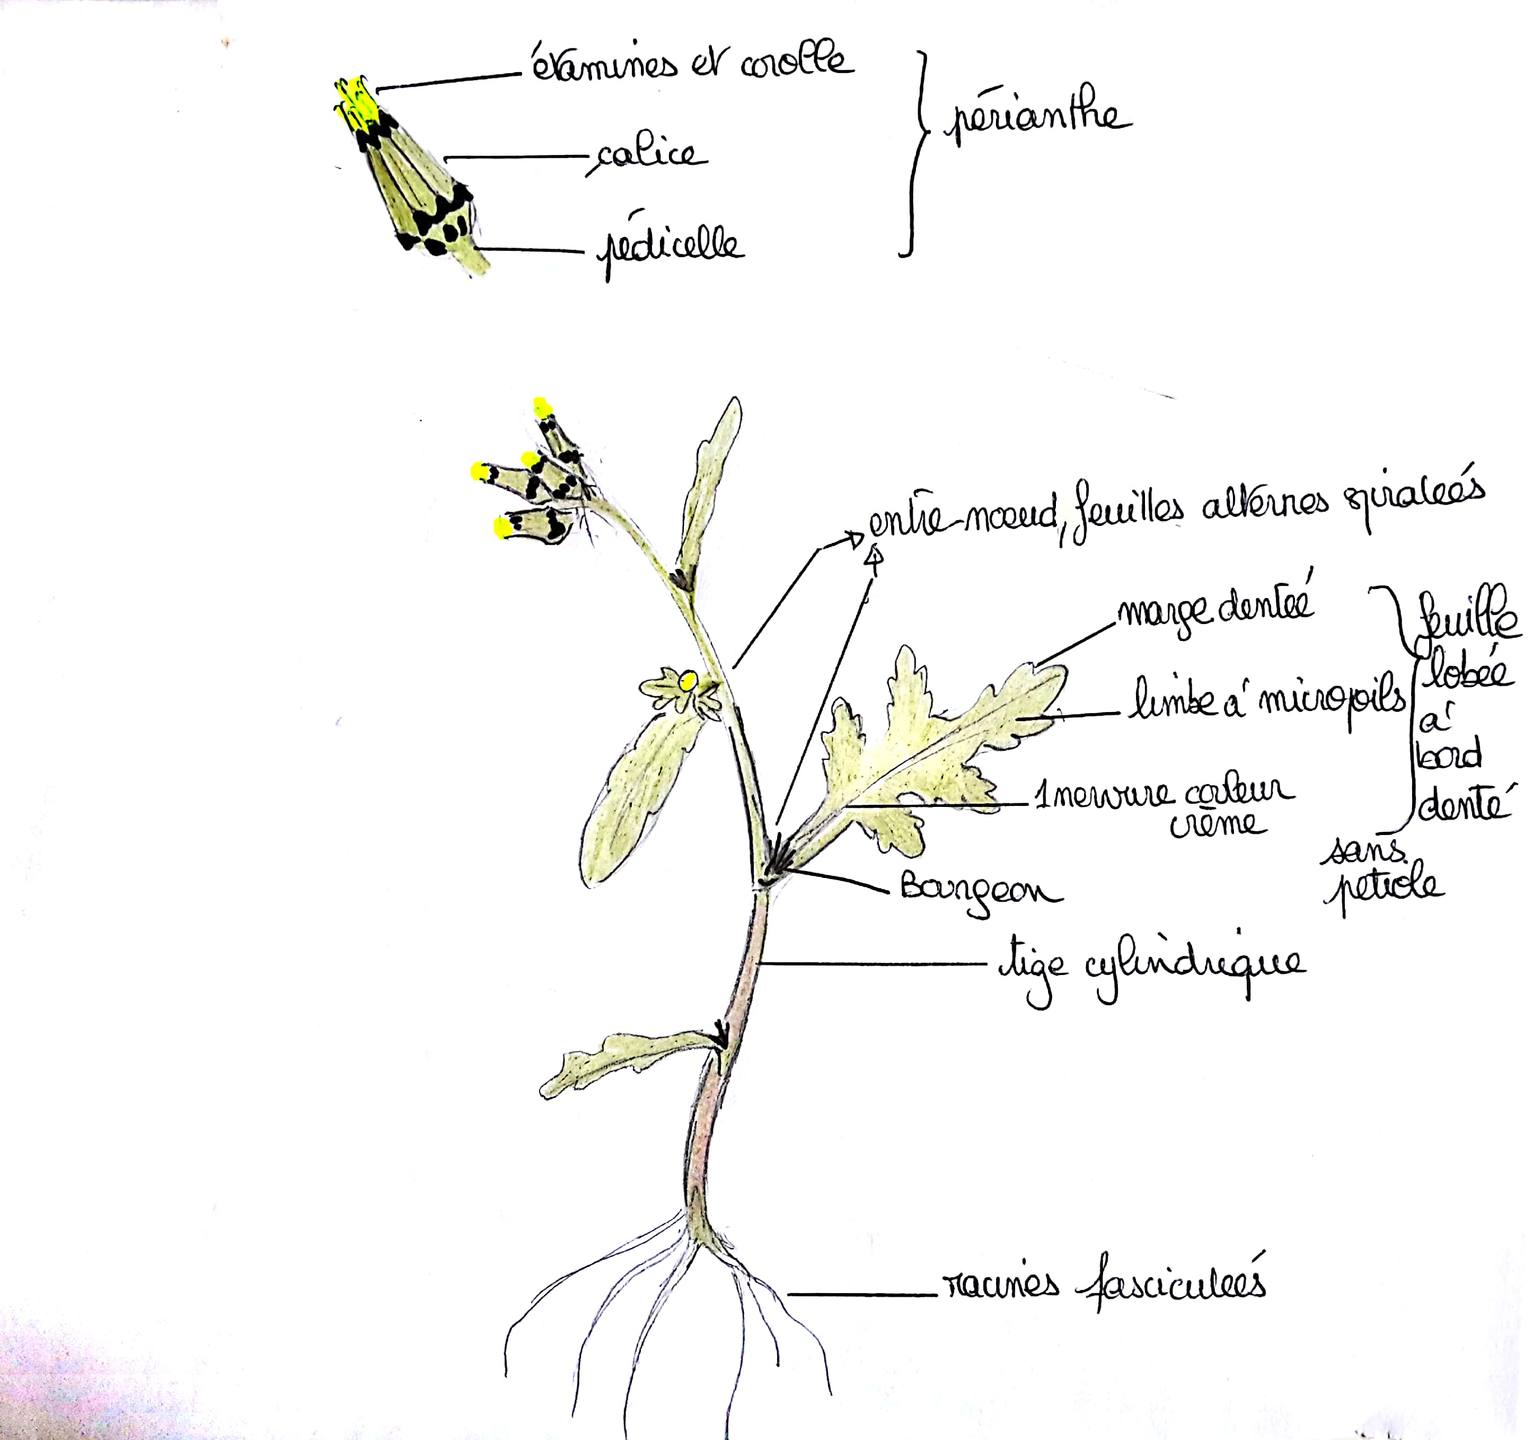 étamines et corolle
calice
pédicelle
périanthe
entre-noeud, feuilles alternes spiraleés
marge denteé
limbe à micropoils
1 nervure couleur
crème
feuille
lobée
à
bord
denté
sans
petiole
Bourgeon
tige cylindrique
racines fasciculeés